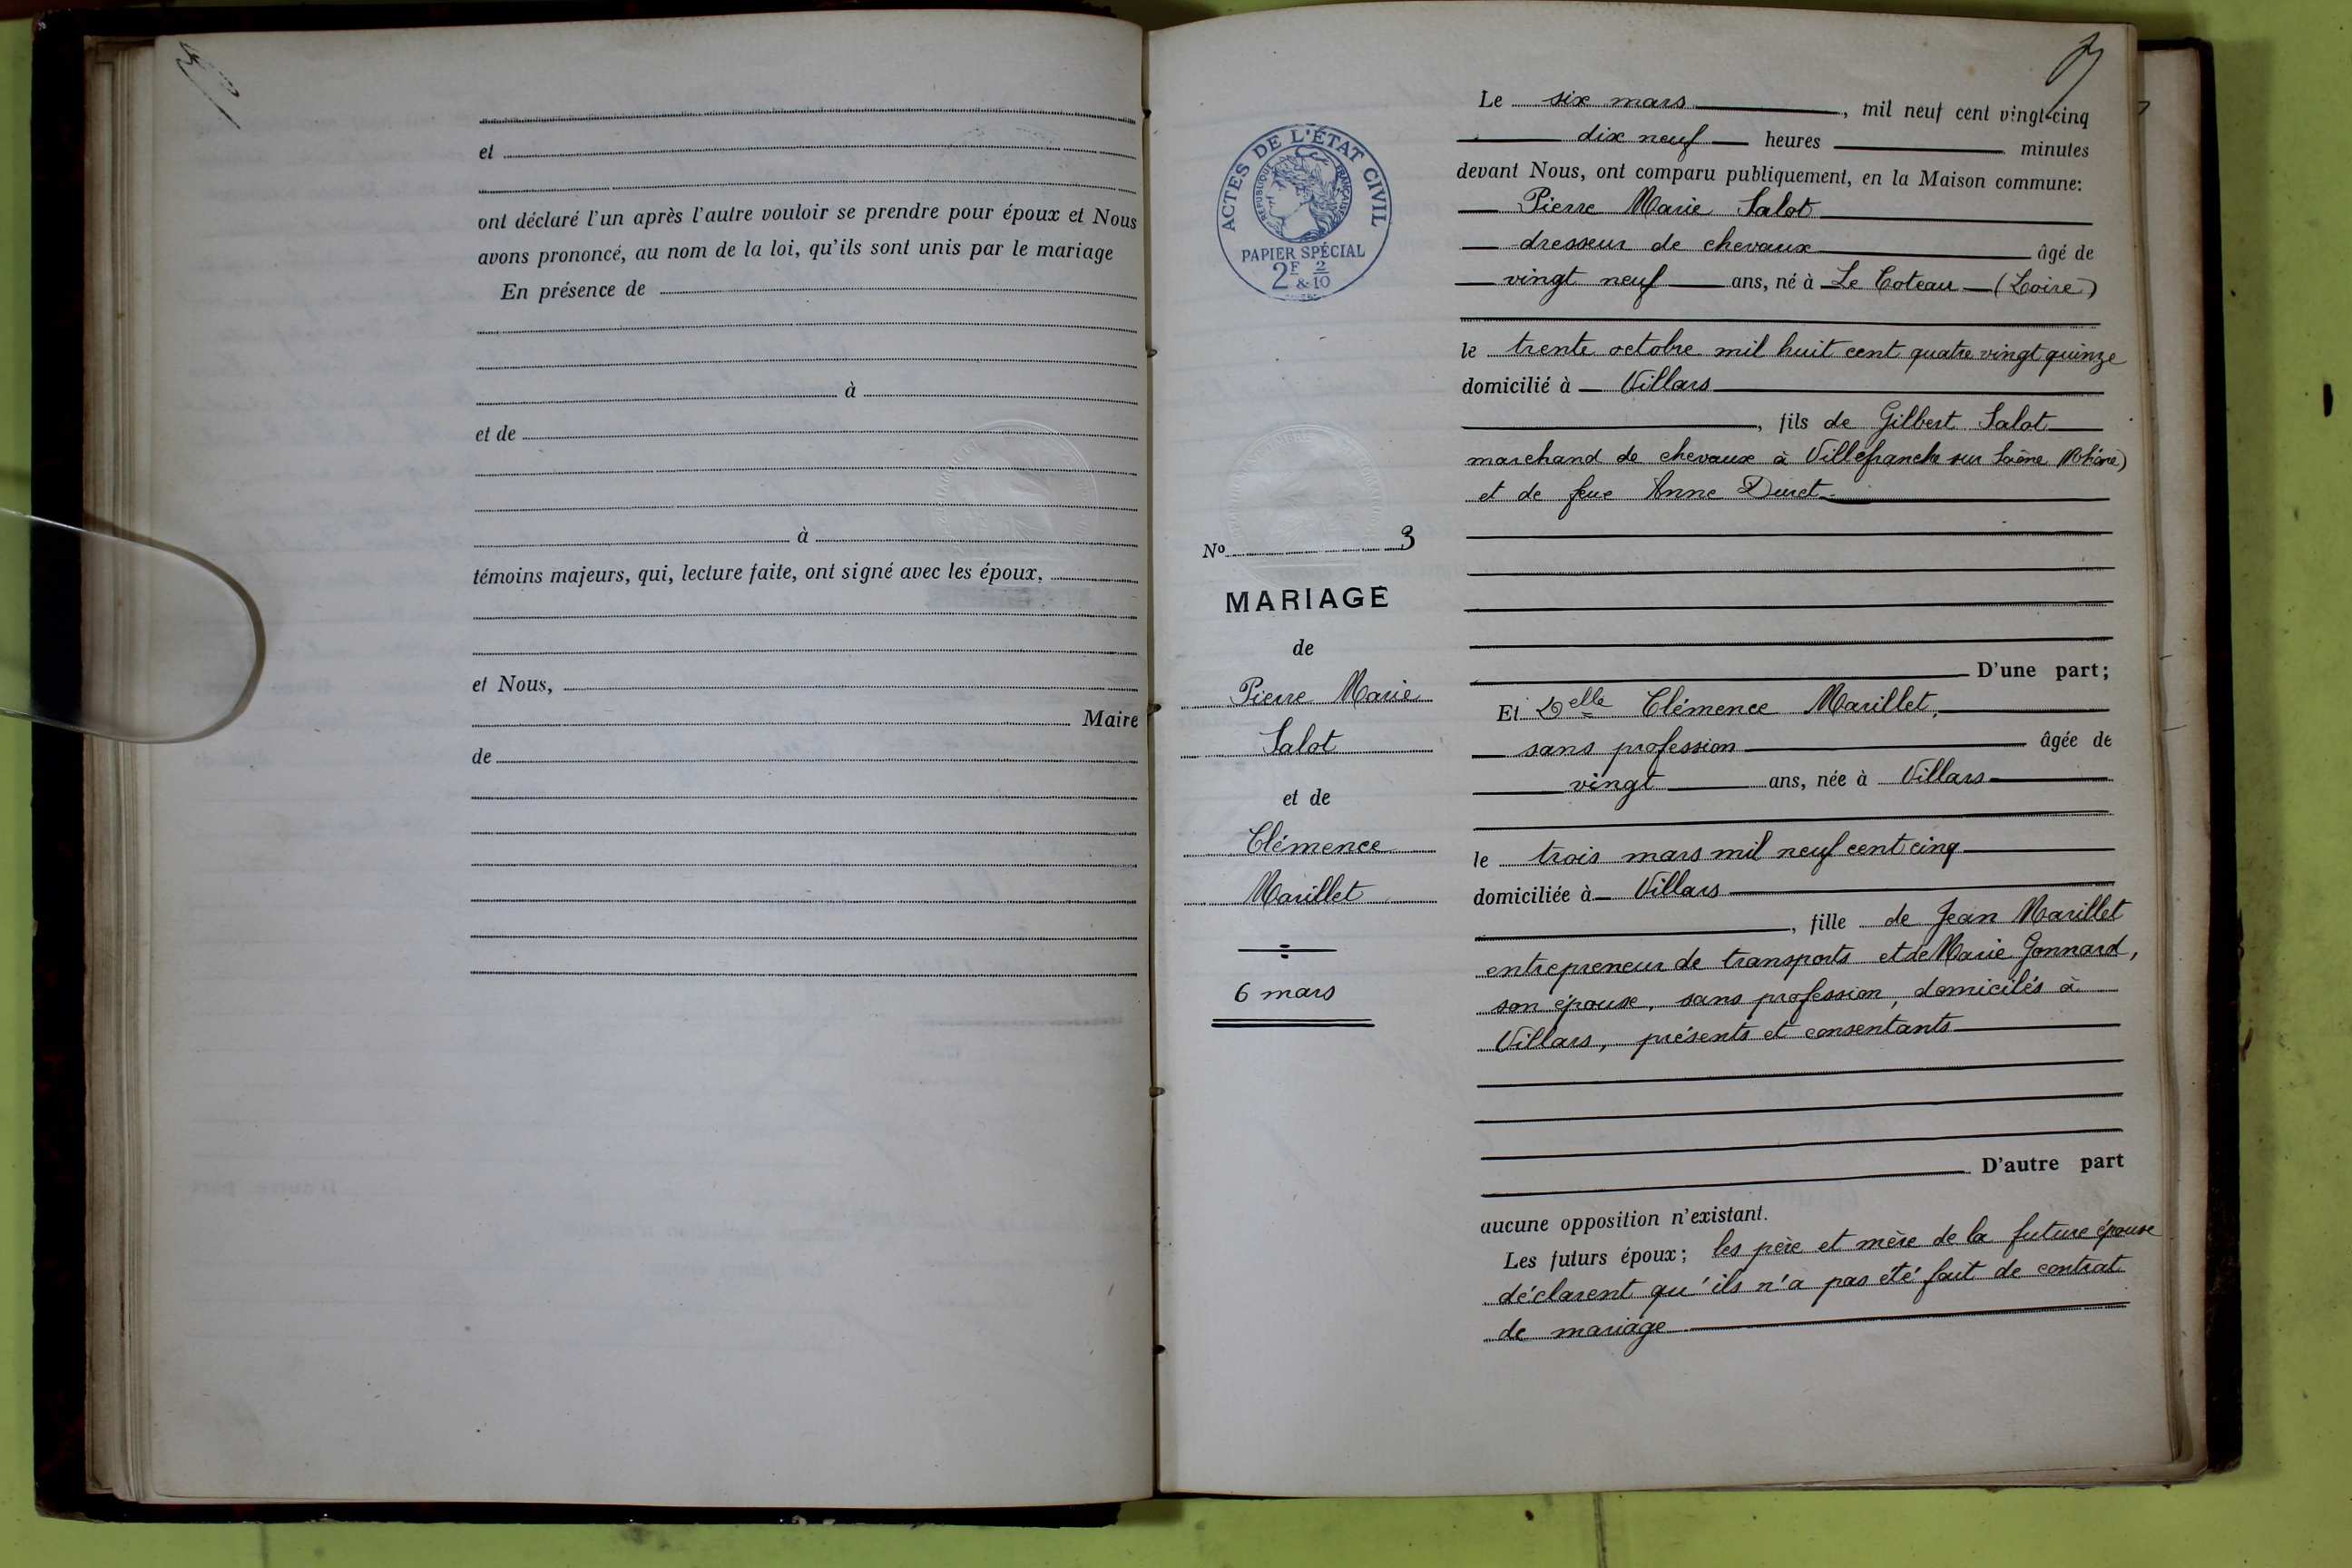 et
ont déclaré l'un après l'autre vouloir se prendre pour époux et Nous
avons prononcé, au nom de la loi, qu'ils sont unis par le mariage
En présence de
à
et de
à
témoins majeurs, qui, lecture faite, ont signé avec les époux,
et Nous,
Maire
de
ACTES DE L'ÉTAT CIVIL
RÉPUBLIQUE FRANÇAISE
PAPIER SPÉCIAL
2F & 2/10
No 3
MARIAGE
de
Pierre Marie
Salot
et de
Clémence
Marillet
6 mars
Le six mars, mil neuf cent vingt-cinq
dix neuf heures minutes
devant Nous, ont comparu publiquement, en la Maison commune:
Pierre Marie Salot
dresseur de chevaux âgé de
vingt neuf ans, né à Le Coteau (Loire)
le trente octobre mil huit cent quatre vingt quinze
domicilié à Villars
, fils de Gilbert Salot
marchand de chevaux à Villefranche sur Saône (Rhône)
et de feue Anne Duret
D'une part;
Et Delle Clémence Marillet,
sans profession âgée de
vingt ans, née à Villars
le trois mars mil neuf cent cinq
domiciliée à Villars
, fille de Jean Marillet
entrepreneur de transports et de Marie Gonnard,
son épouse, sans profession, domiciliés à
Villars, présents et consentants
D'autre part
aucune opposition n'existant.
Les futurs époux; les père et mère de la future épouse
déclarent qu'ils n'a pas été fait de contrat
de mariage